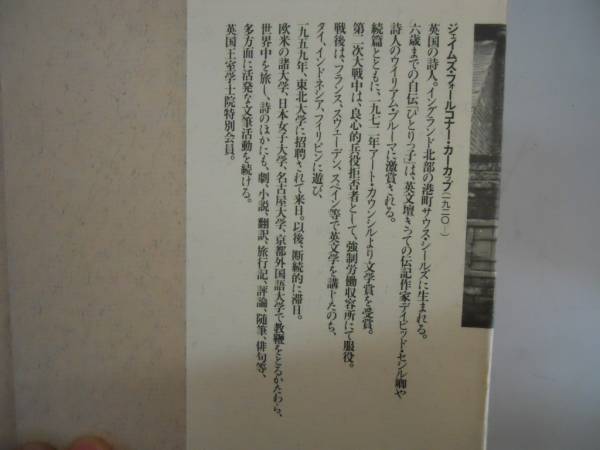 ジェイムズ・フォールコナー・カーカップ(一九二〇―)
英国の詩人。イングランド北部の港町サウス・シールズに生まれる。
六歳までの自伝「ひとりっ子」は、英文壇きっての伝記作家デイビッド・セシル卿や
詩人のウイリアム・プルーマに激賞される。
続篇とともに、一九七二年アート・カウンシルより文学賞を受賞。
第二次大戦中は、良心的兵役拒否者として、強制労働収容所にて服役。
戦後は、フランス、スウェーデン、スペイン等で英文学を講じたのち、
タイ、インドネシア、フィリピンに遊び、
一九五九年、東北大学に招聘されて来日。以後、断続的に滞日。
欧米の諸大学、日本女子大学、名古屋大学、京都外国語大学で教鞭をとるかたわら、
世界中を旅し、詩のほかにも、劇、小説、翻訳、旅行記、評論、随筆、俳句等、
多方面に活発な文筆活動を続ける。
英国王室学士院特別会員。